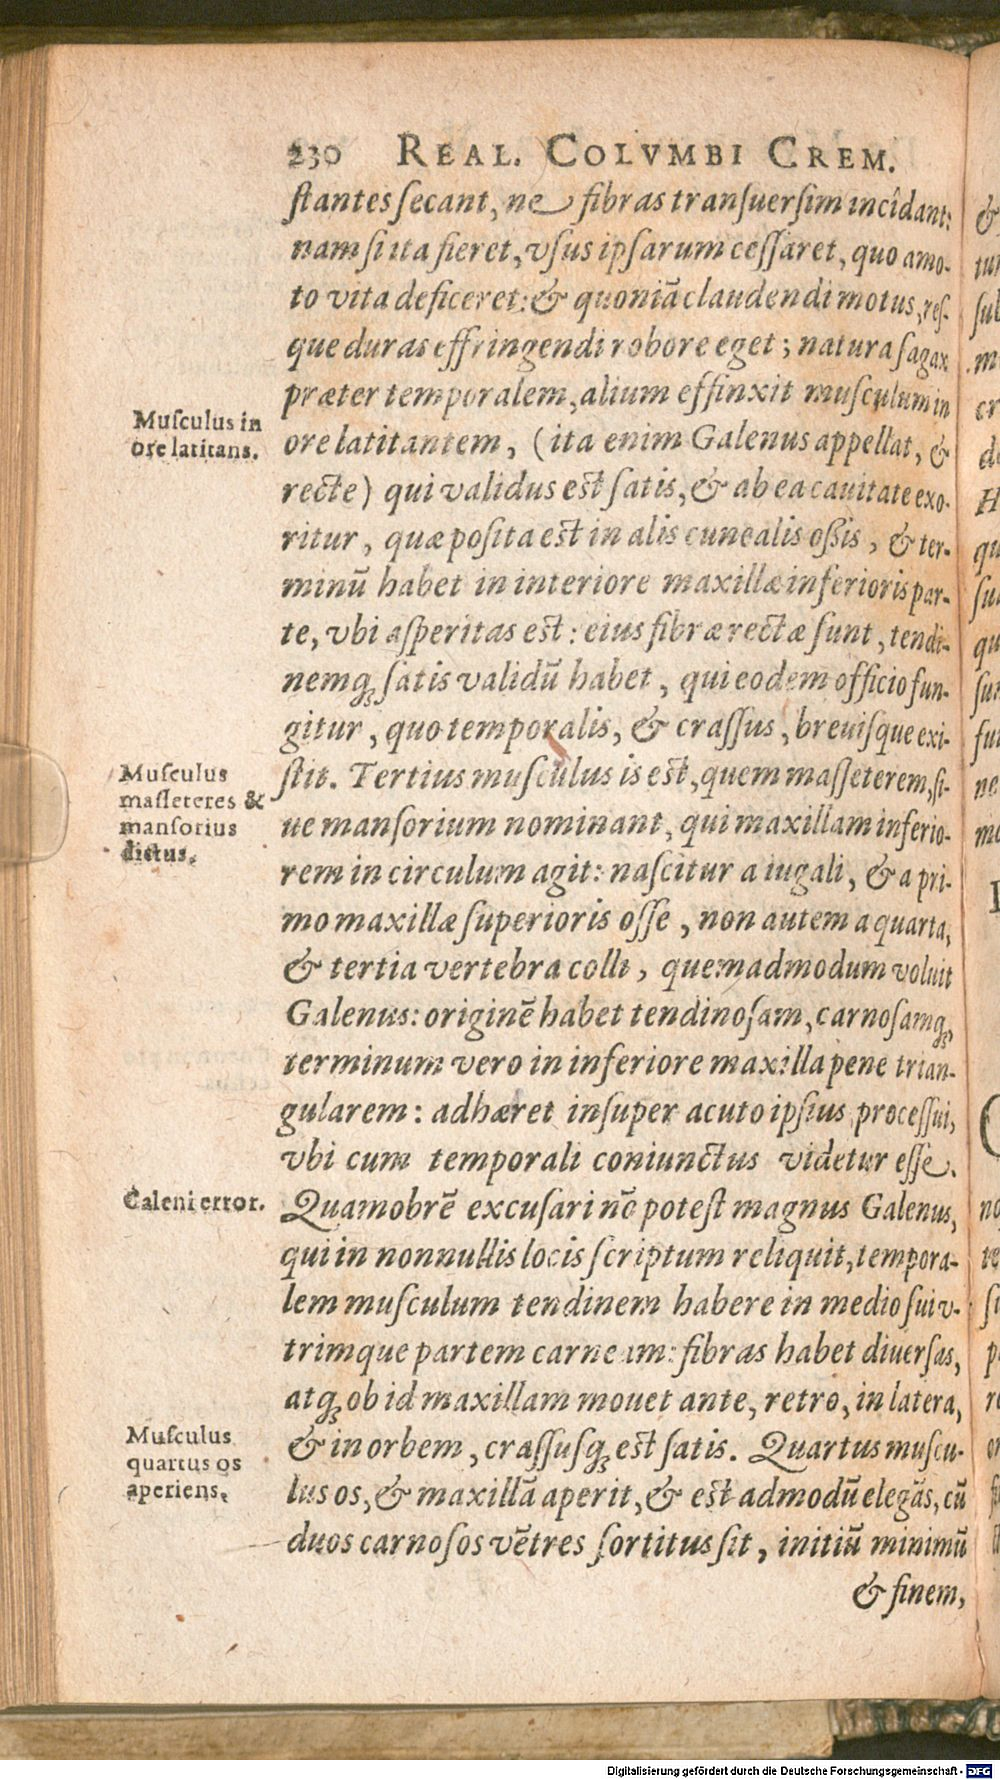 230 REAL. COLVMBI CREM.
ſtantes ſecant, ne fibras tranſuerſim incîdant:
nam ſi ita fieret, vſus ipſarum ceſſaret, quo amo-
to vita deficeret: & quoniā claudendi motus, reſ-
que duras effringendi robore eget; natura ſagax
præter temporalem, alium effinxit muſculum in
Muſculus in
ore latitans.
ore latitantem, (ita enim Galenus appellat, &
recte) qui validus est ſatis, & ab ea cauitate exo-
ritur, quæ poſita est in alis cunealis oßis, & ter-
minū habet in interiore maxillæ inferioris par-
te, vbi aſperitas est: eius fibræ rectæ ſunt, tendi-
nemq́ ſatis validū habet, qui eodem officio fun-
gitur, quo temporalis, & craſſus, breuiſque exi-
Muſculus
maſſeteres &
manſorius
dictus.
ſtit. Tertius muſculus is est, quem maſſeterem, ſi-
ue manſorium nominant, qui maxillam inferio-
rem in circulum agit: naſcitur a iugali, & a pri-
mo maxillæ ſuperioris oſſe, non autem a quarta,
& tertia vertebra colli, quemadmodum voluit
Galenus: originē habet tendinoſam, carnoſamq́,
terminum vero in inferiore maxilla pene trian-
gularem: adhæret inſuper acuto ipſius proceſſui,
vbi cum temporali coniunctus videtur eſſe.
Galeni error.
Quamobrē excuſari nō poteſt magnus Galenus,
qui in nonnullis locis ſcriptum reliquit, tempora-
lem muſculum tendinem habere in medio ſui v-
trimque partem carneam: fibras habet diuerſas,
atq́ ob id maxillam mouet ante, retro, in latera,
Muſculus
quartus os
aperiens.
& in orbem, craſſuſq́ est ſatis. Quartus muſcu-
lus os, & maxillā aperit, & est admodū elegās, cū
duos carnoſos vētres ſortitus ſit, initiū minimū
& finem,
Digitalisierung gefördert durch die Deutsche Forschungsgemeinschaft - DFG